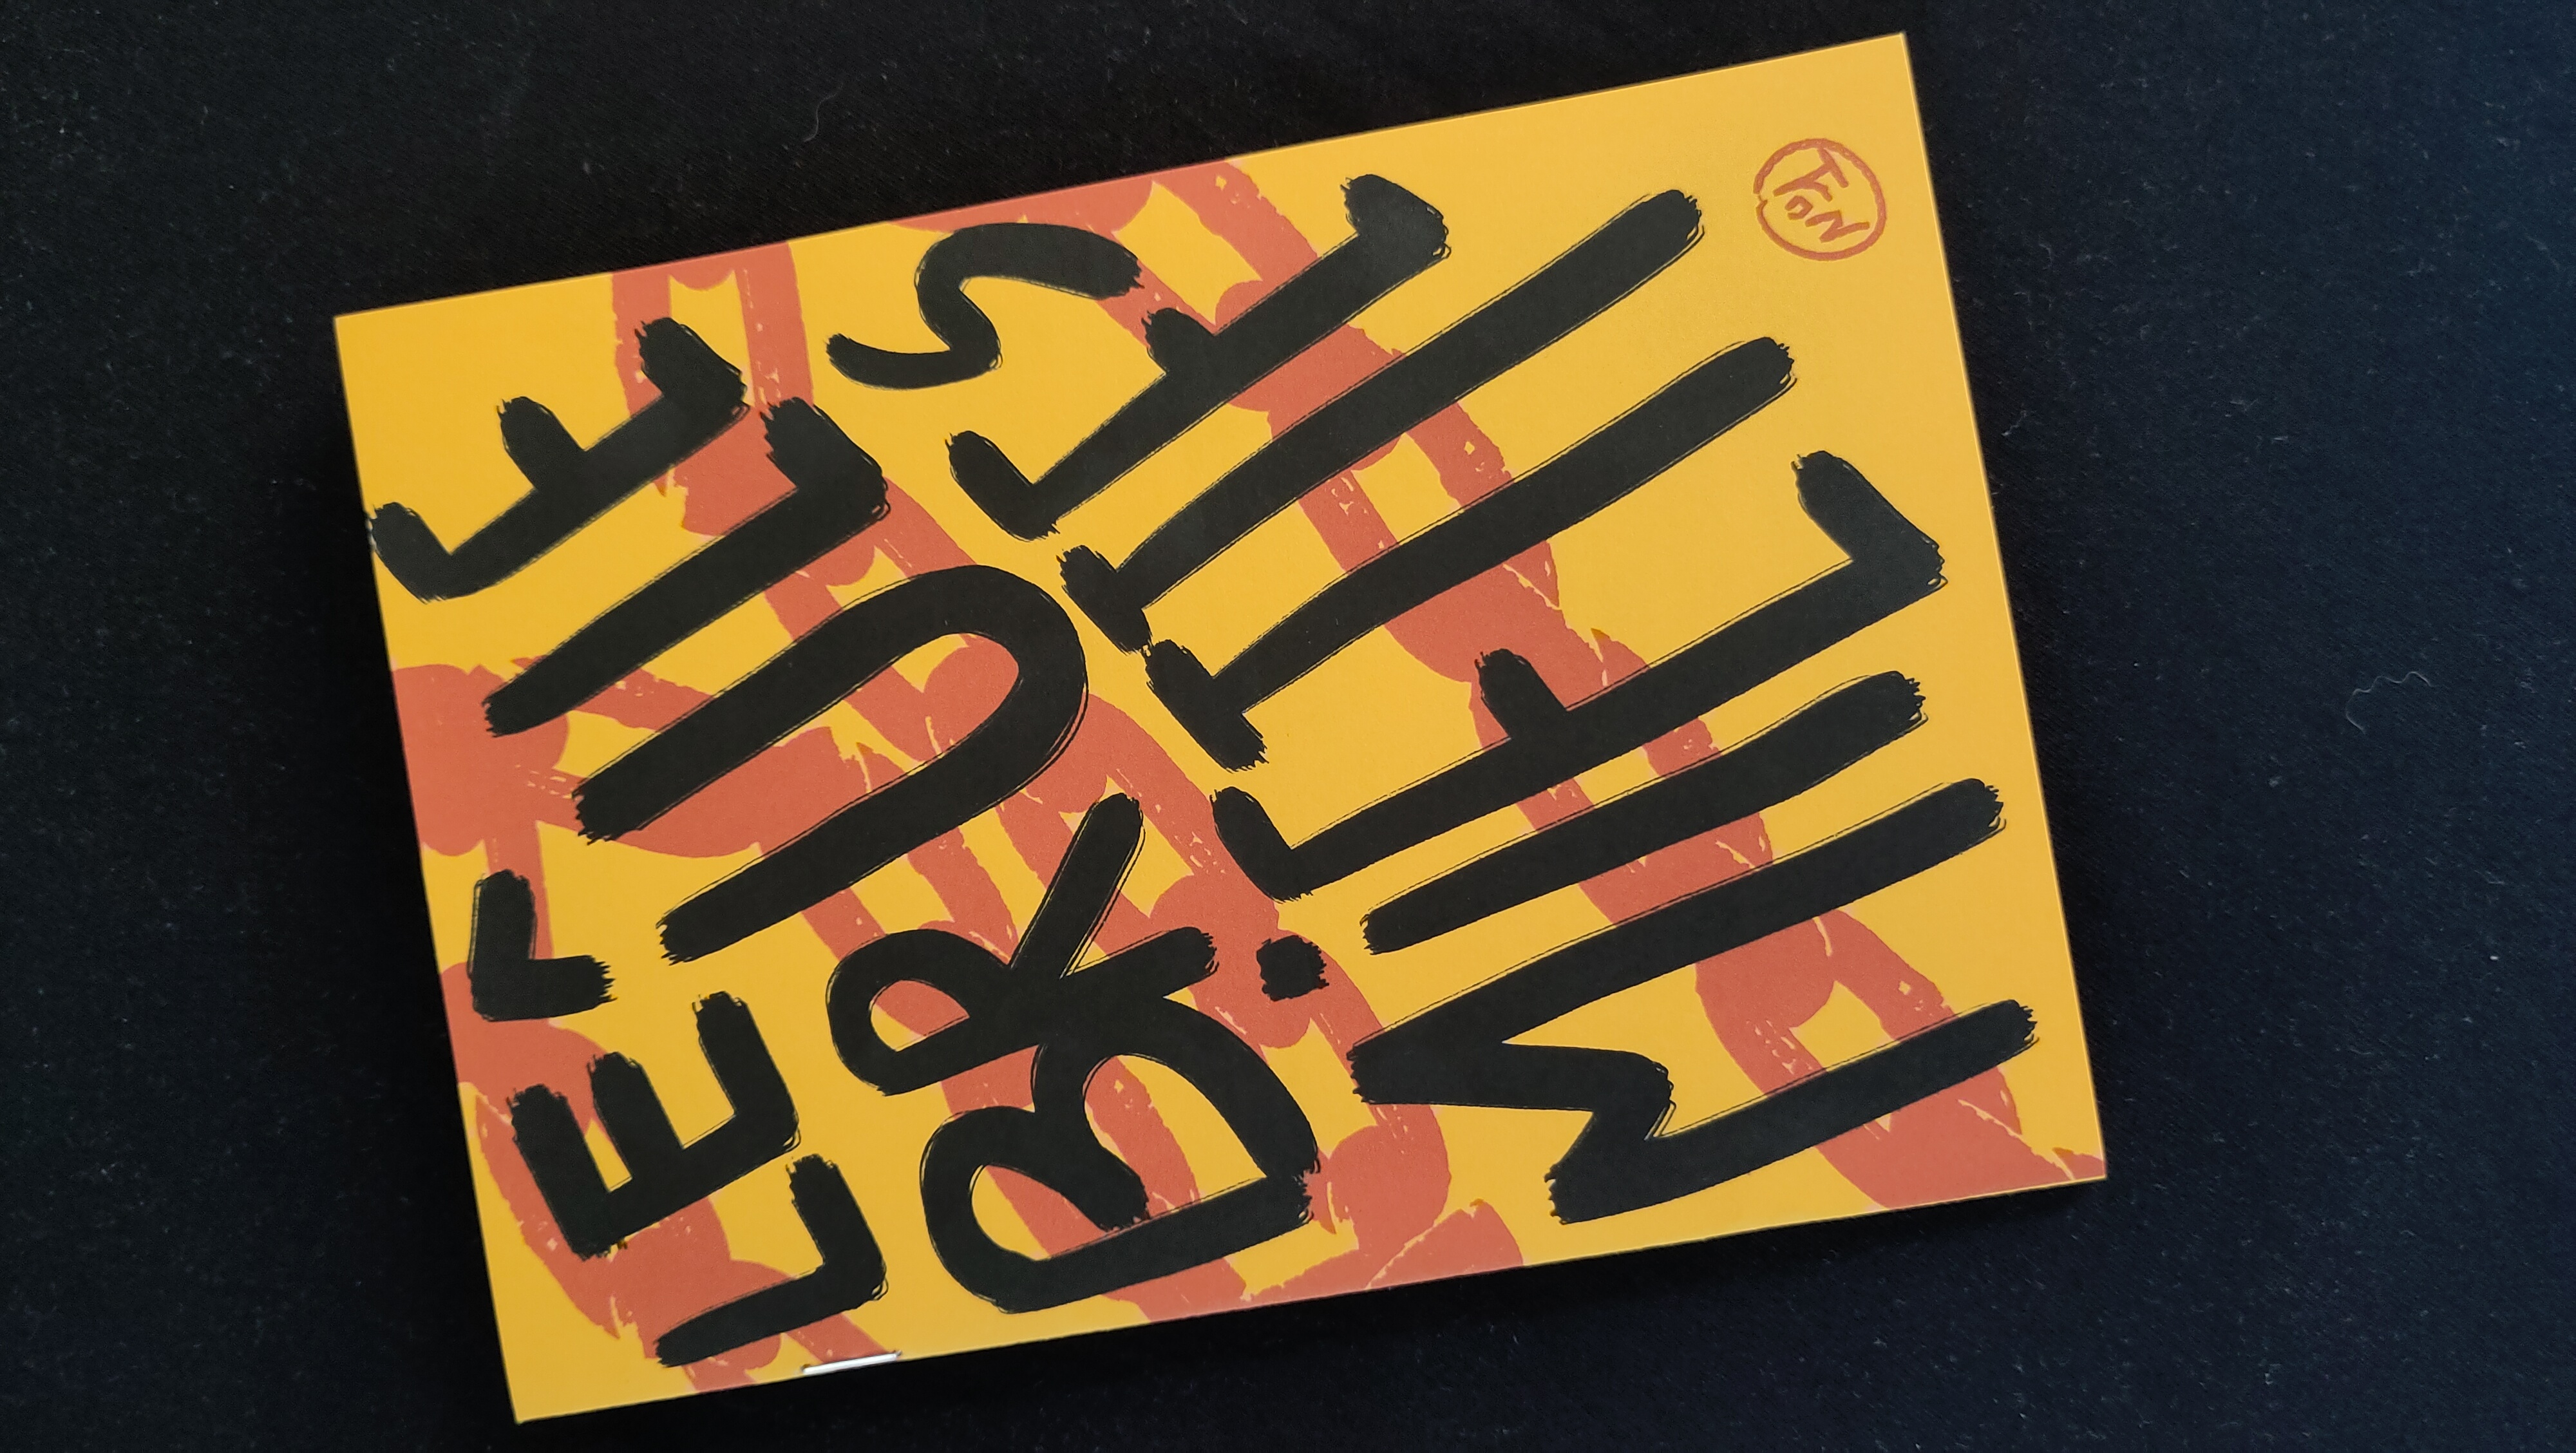 LE
BRÛLE
MIETTES
N°1